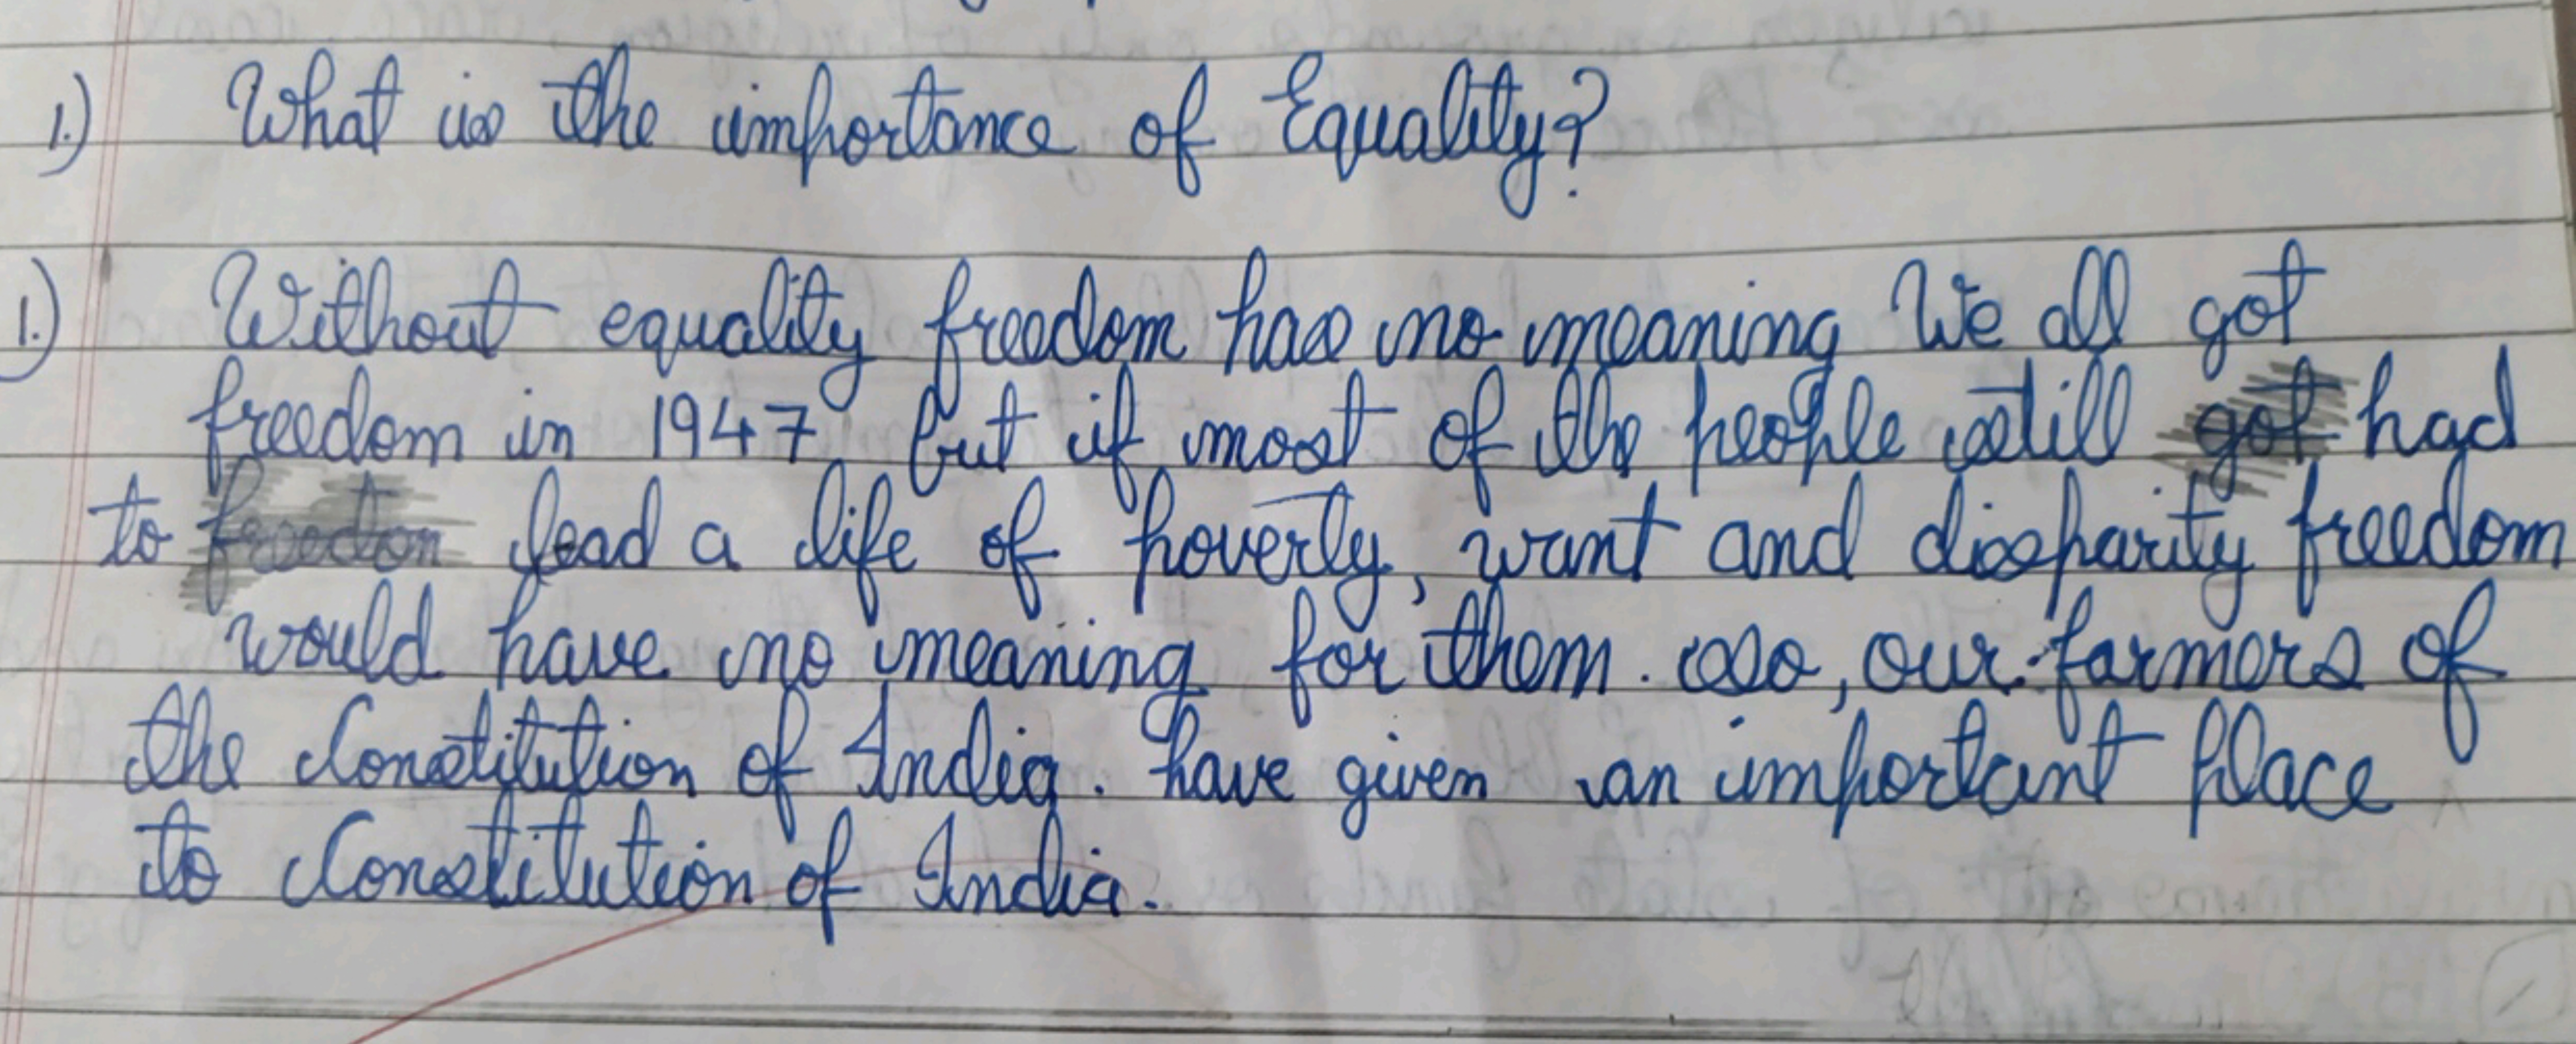 1.) What is the importance of Equality?
1.) Without equality freedom has no meaning We all got
freedom in 1947, but if most of the people still got had
to freedon lead a life of poverty, want and disparity freedom
would have no meaning for them. so, our farmers of
the Constitution of India. have given an important place
to Constitution of India.